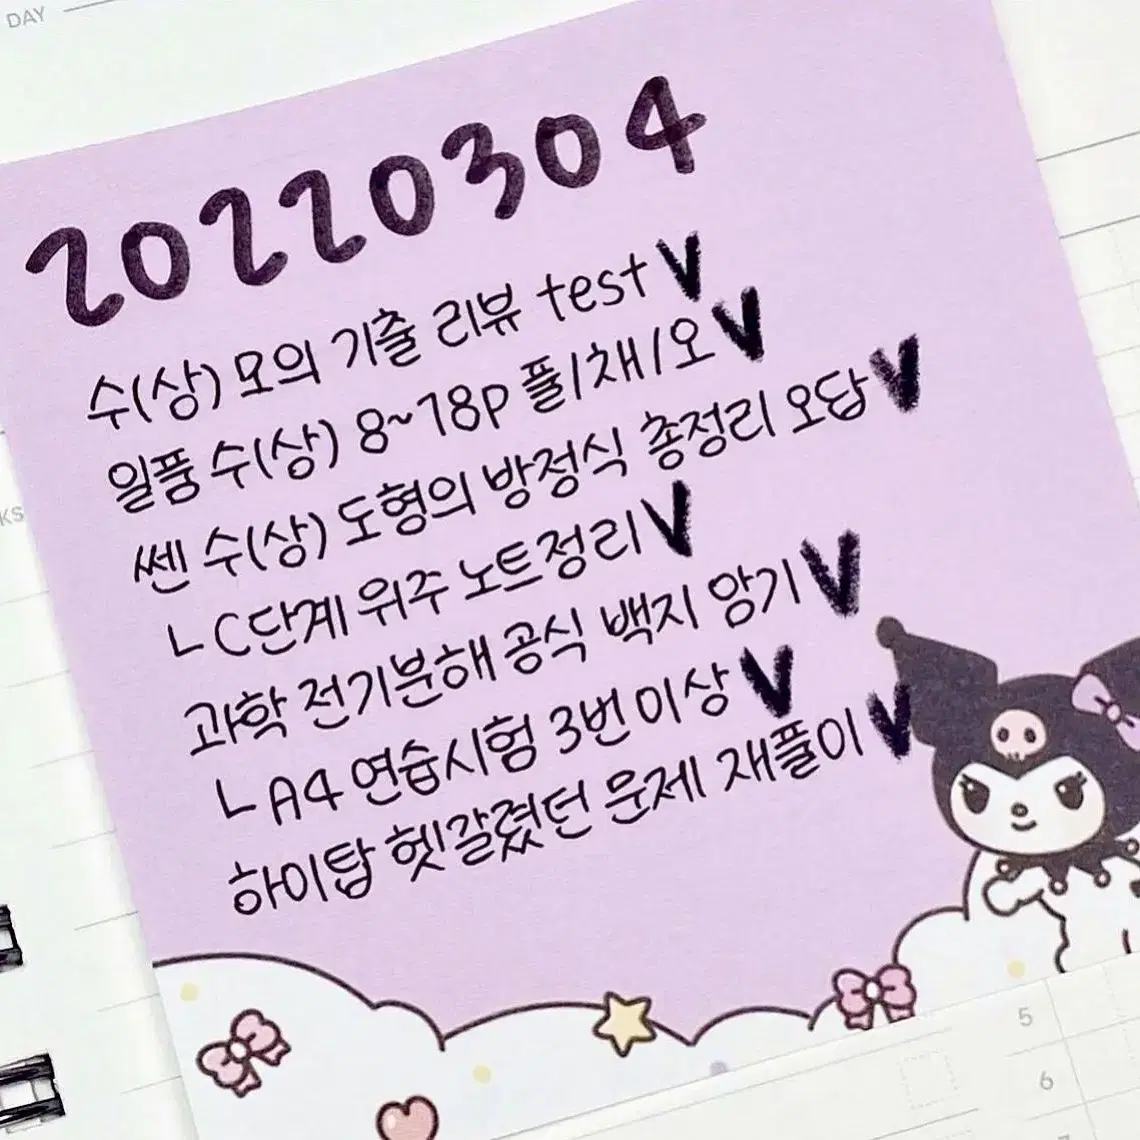 DAY
20220304
수(상) 모의 기출 리뷰 test V
일품 수(상) 8~18p 풀/채/오 V
쎈 수(상) 도형의 방정식 총정리 오답 V
ㄴC단계 위주 노트정리 V
과학 전기분해 공식 백지 암기 V
ㄴA4 연습시험 3번 이상 V
하이탑 헷갈렸던 문제 재풀이 V
KS
5
6